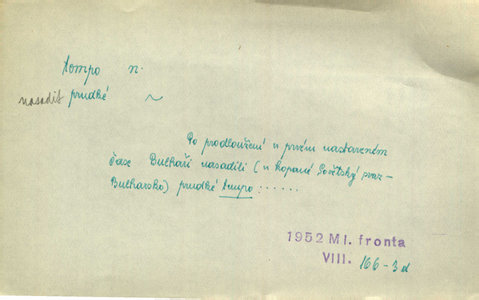 tempo n.
nasadit prudké ~
Po prodloužení v prvém nastaveném
čase Bulhaři nasadili (v kopané Sovětský svaz-
Bulharsko) prudké tempo:.....
1952 Ml. fronta
VIII. 166-3d